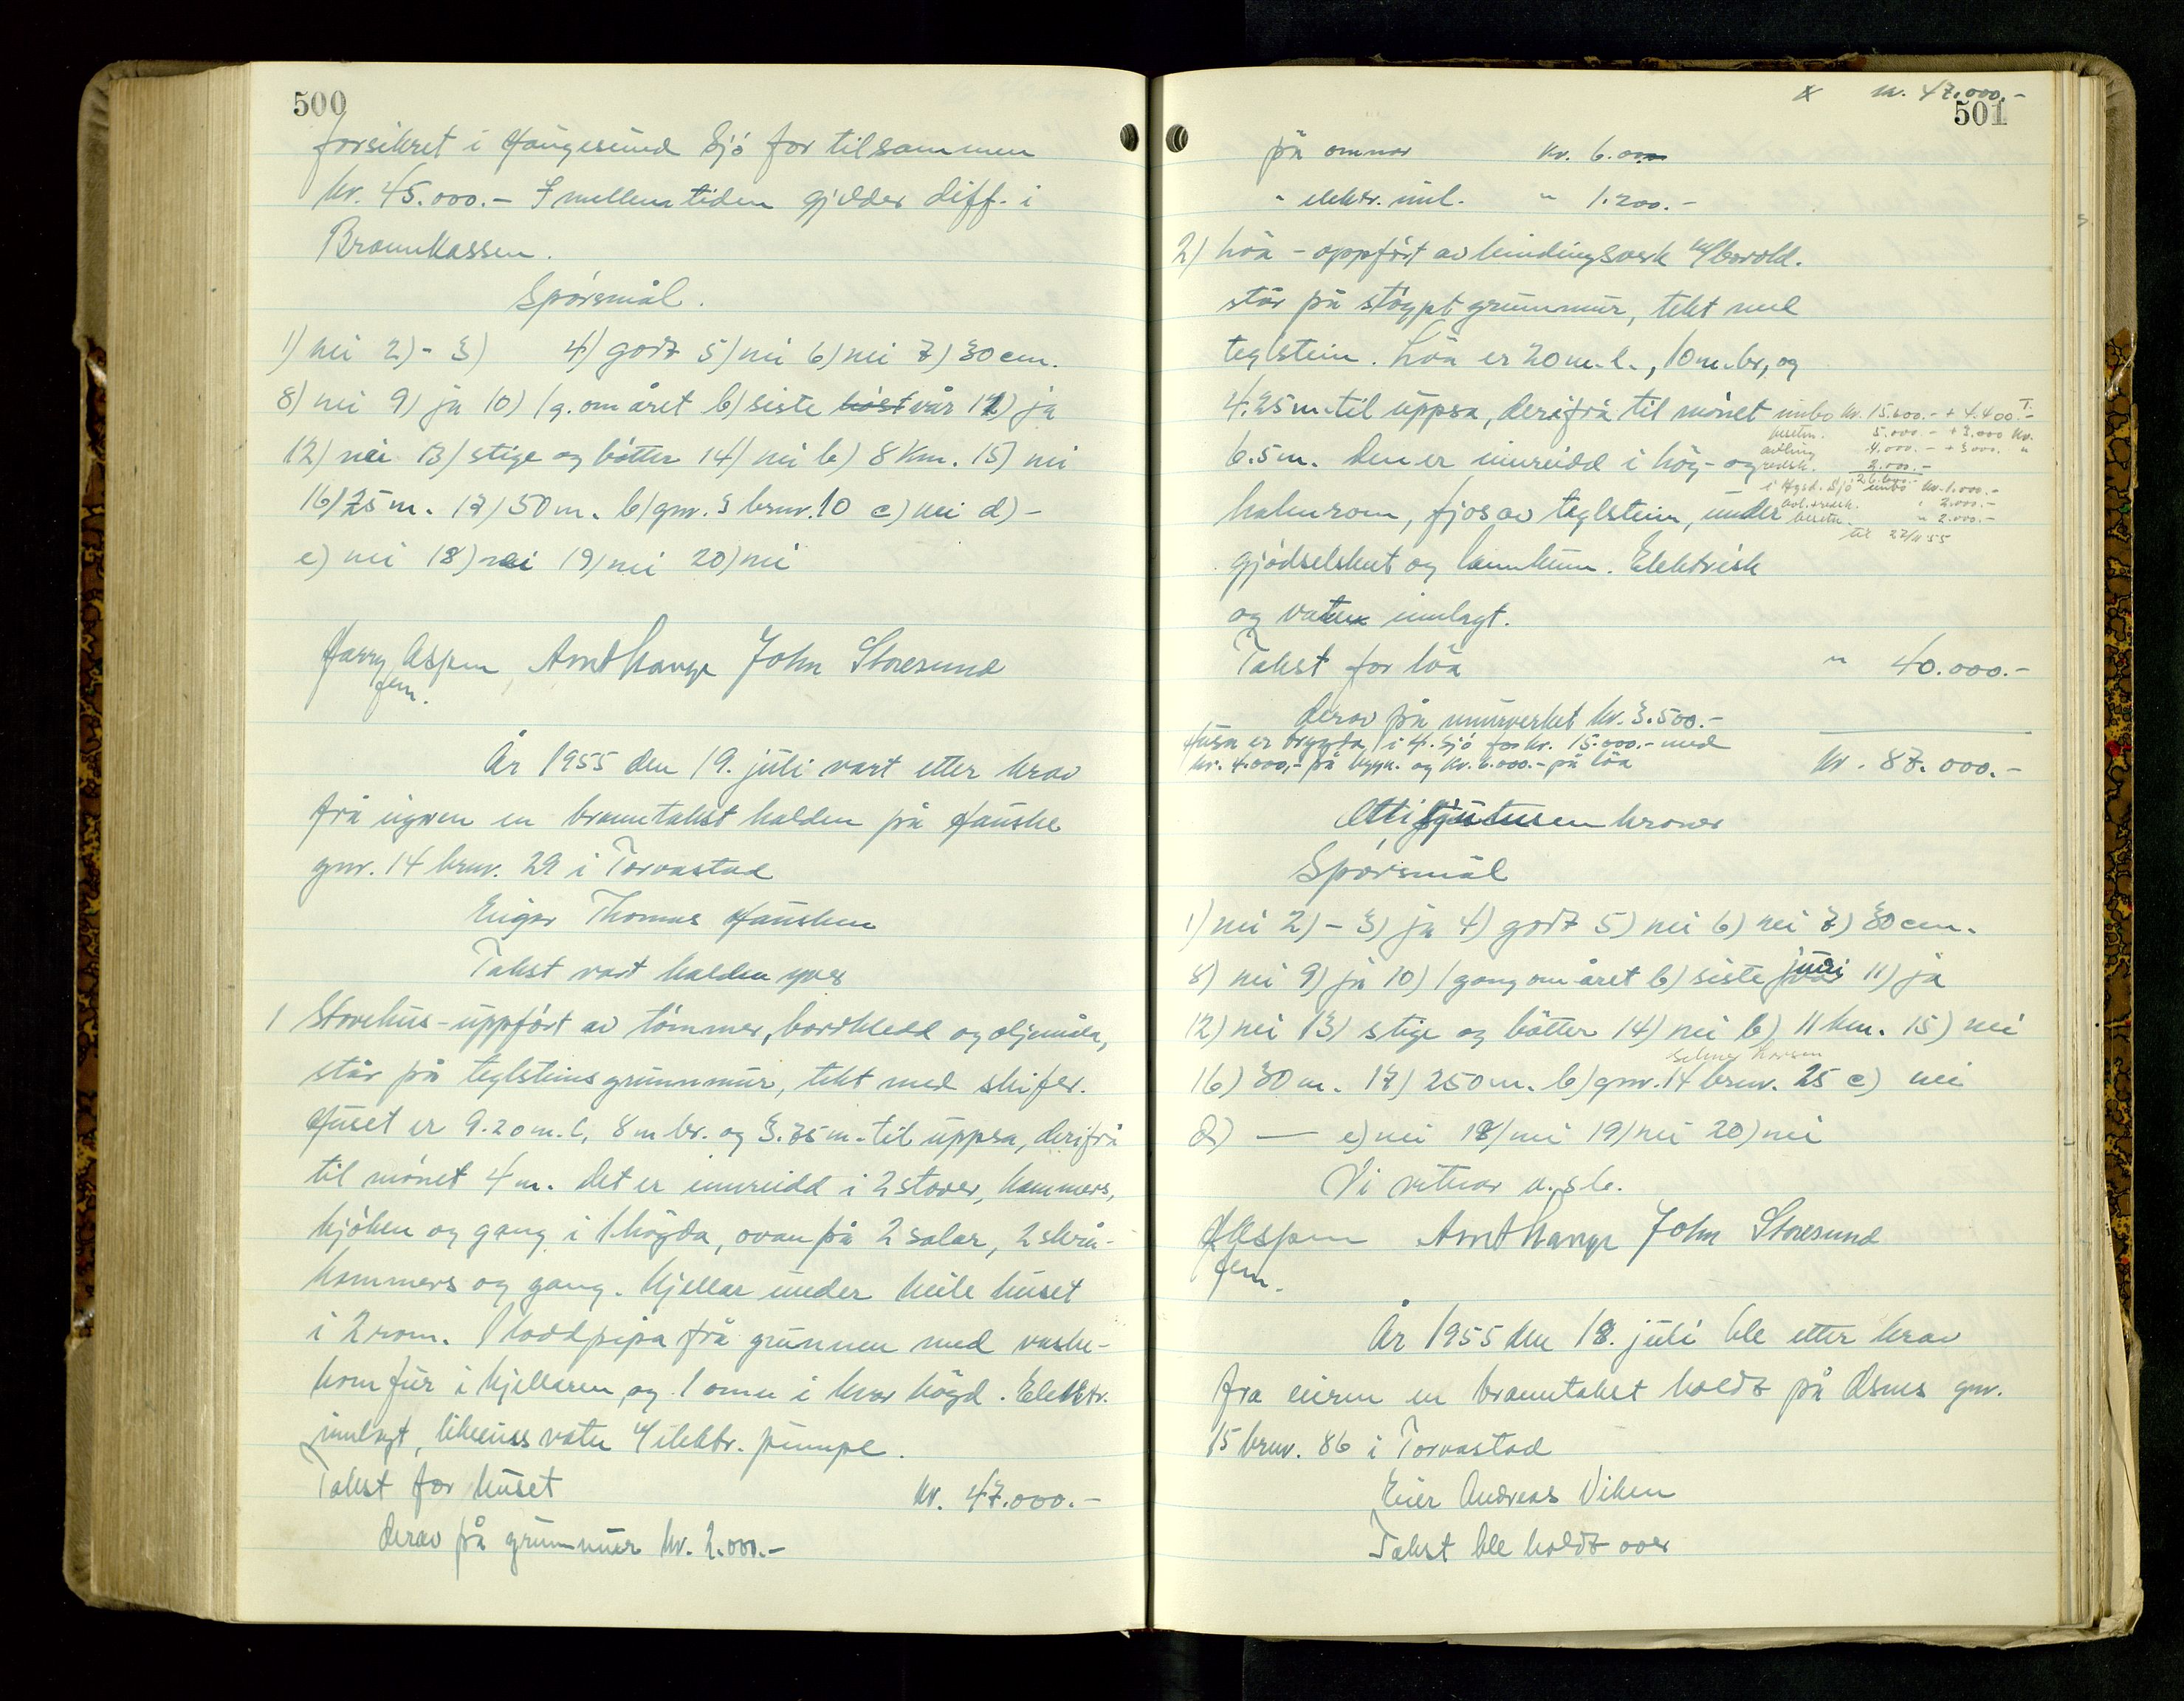 500
forsikret i Haugesund Sjö for tilsammen
kr. 45.000.- I mellemtiden gjelder diff. i
Brannkassen.
Spörsmål.
1) nei 2) - 3) 4) godt 5) nei 6) nei 7) 30 cm.
8) nei 9) ja 10) 1 g. om året b) siste höst vår 11) ja
12) nei 13) stige og bötter 14) nei b) 8 km. 15) nei
16) 25 m. 17) 50 m. b) gnr. 3 brnr. 10 c) nei d) -
e) nei 18) nei 19) nei 20) nei
Harry Aspen Arnt Hauge John Storesund
fem.
År 1955 den 19. juli vart etter krav
frå eigaren en branntakst halden på Hauske
gnr. 14 brnr. 29 i Torvastad
Eigar Thomas Hausken
Takst vart halden yver
1 Stovehus - uppfört av tömmer, bordkledd og oljemåla,
står på teglsteinsgrunnmur, tekt med skifer.
Huset er 9.20 m. l. 8 m br. og 3.75 m. til uppsa, derifrå
til mönet 4 m. Det er innreidd i 2 stover, kammers,
kjöken og gang i 1 högda, ovan på 2 salar, 2 skrå-
kammers og gang. Kjellar under heile huset
i 2 rom. 1 loddpipa frå grunnen med vaske-
komfur i kjellaren, og 1 omn i hver högd. Elektr.
innlagt, likeeins vatn m/ elektr. pumpe.
Takst for huset kr. 47.000.-
Derav på grunnmur kr. 2.000.-
x kr. 47.000.-
501
på omnar kr. 6.00
" elektr. innl. " 1.200.-
2) Löa - oppfört av bindingsverk m/ bordkl.
står på stöypt grunnmur, tekt med
teglstein. Löa er 20 m. l., 10 m. br., og
4.25 m. til uppsa, derifrå til mönet
innbo kr. 15.200.- + 4.400.-
besetn. 5.000.- + 3.000 kr.
avling 4.000.- + 3000. "
redsk. 2.000.-
6.5 m. Den er innreidd i höy- og
i Hgsd. Sjö innbo kr. 1.000.-
avl. + redsk. " 2.000.-
besetn. " 2.000.-
til 22/11 55
halmrom, fjos av teglstein, under
gjödselskut og lannkum. Elektrisk
og vatn innlagt.
Takst for löa " 40.000.-
Derav på murverket kr. 3.500.-
Husa er trygda i H. Sjö for kr. 15.000.- med
kr. 4.000,- på bygn. og kr. 6.000.- på löa
kr. 87.000.-
Åttisjutusen kroner
Spörsmål
1) nei 2) - 3) ja 4) godt 5) nei 6) nei 7) 30 cm.
8) nei 9) ja 10) 1 gang om året b) siste juni 11) ja
12) nei 13) stige og bötter 14) nei b) 11 km. 15) nei
16) 30 m. 17) 250 m. b) gnr. 14 brnr. 25 c) nei
d) — e) nei 18) nei 19) nei 20) nei
Vi vitnar u. s. b.
H Aspen Arnt Hauge John Storesund
fem.
År 1955 den 18. juli ble etter krav
fra eieren en branntakst holdt på Osnes gnr.
15 brnr. 86 i Torvastad
Eier Andreas Viken
Takst ble holdt over